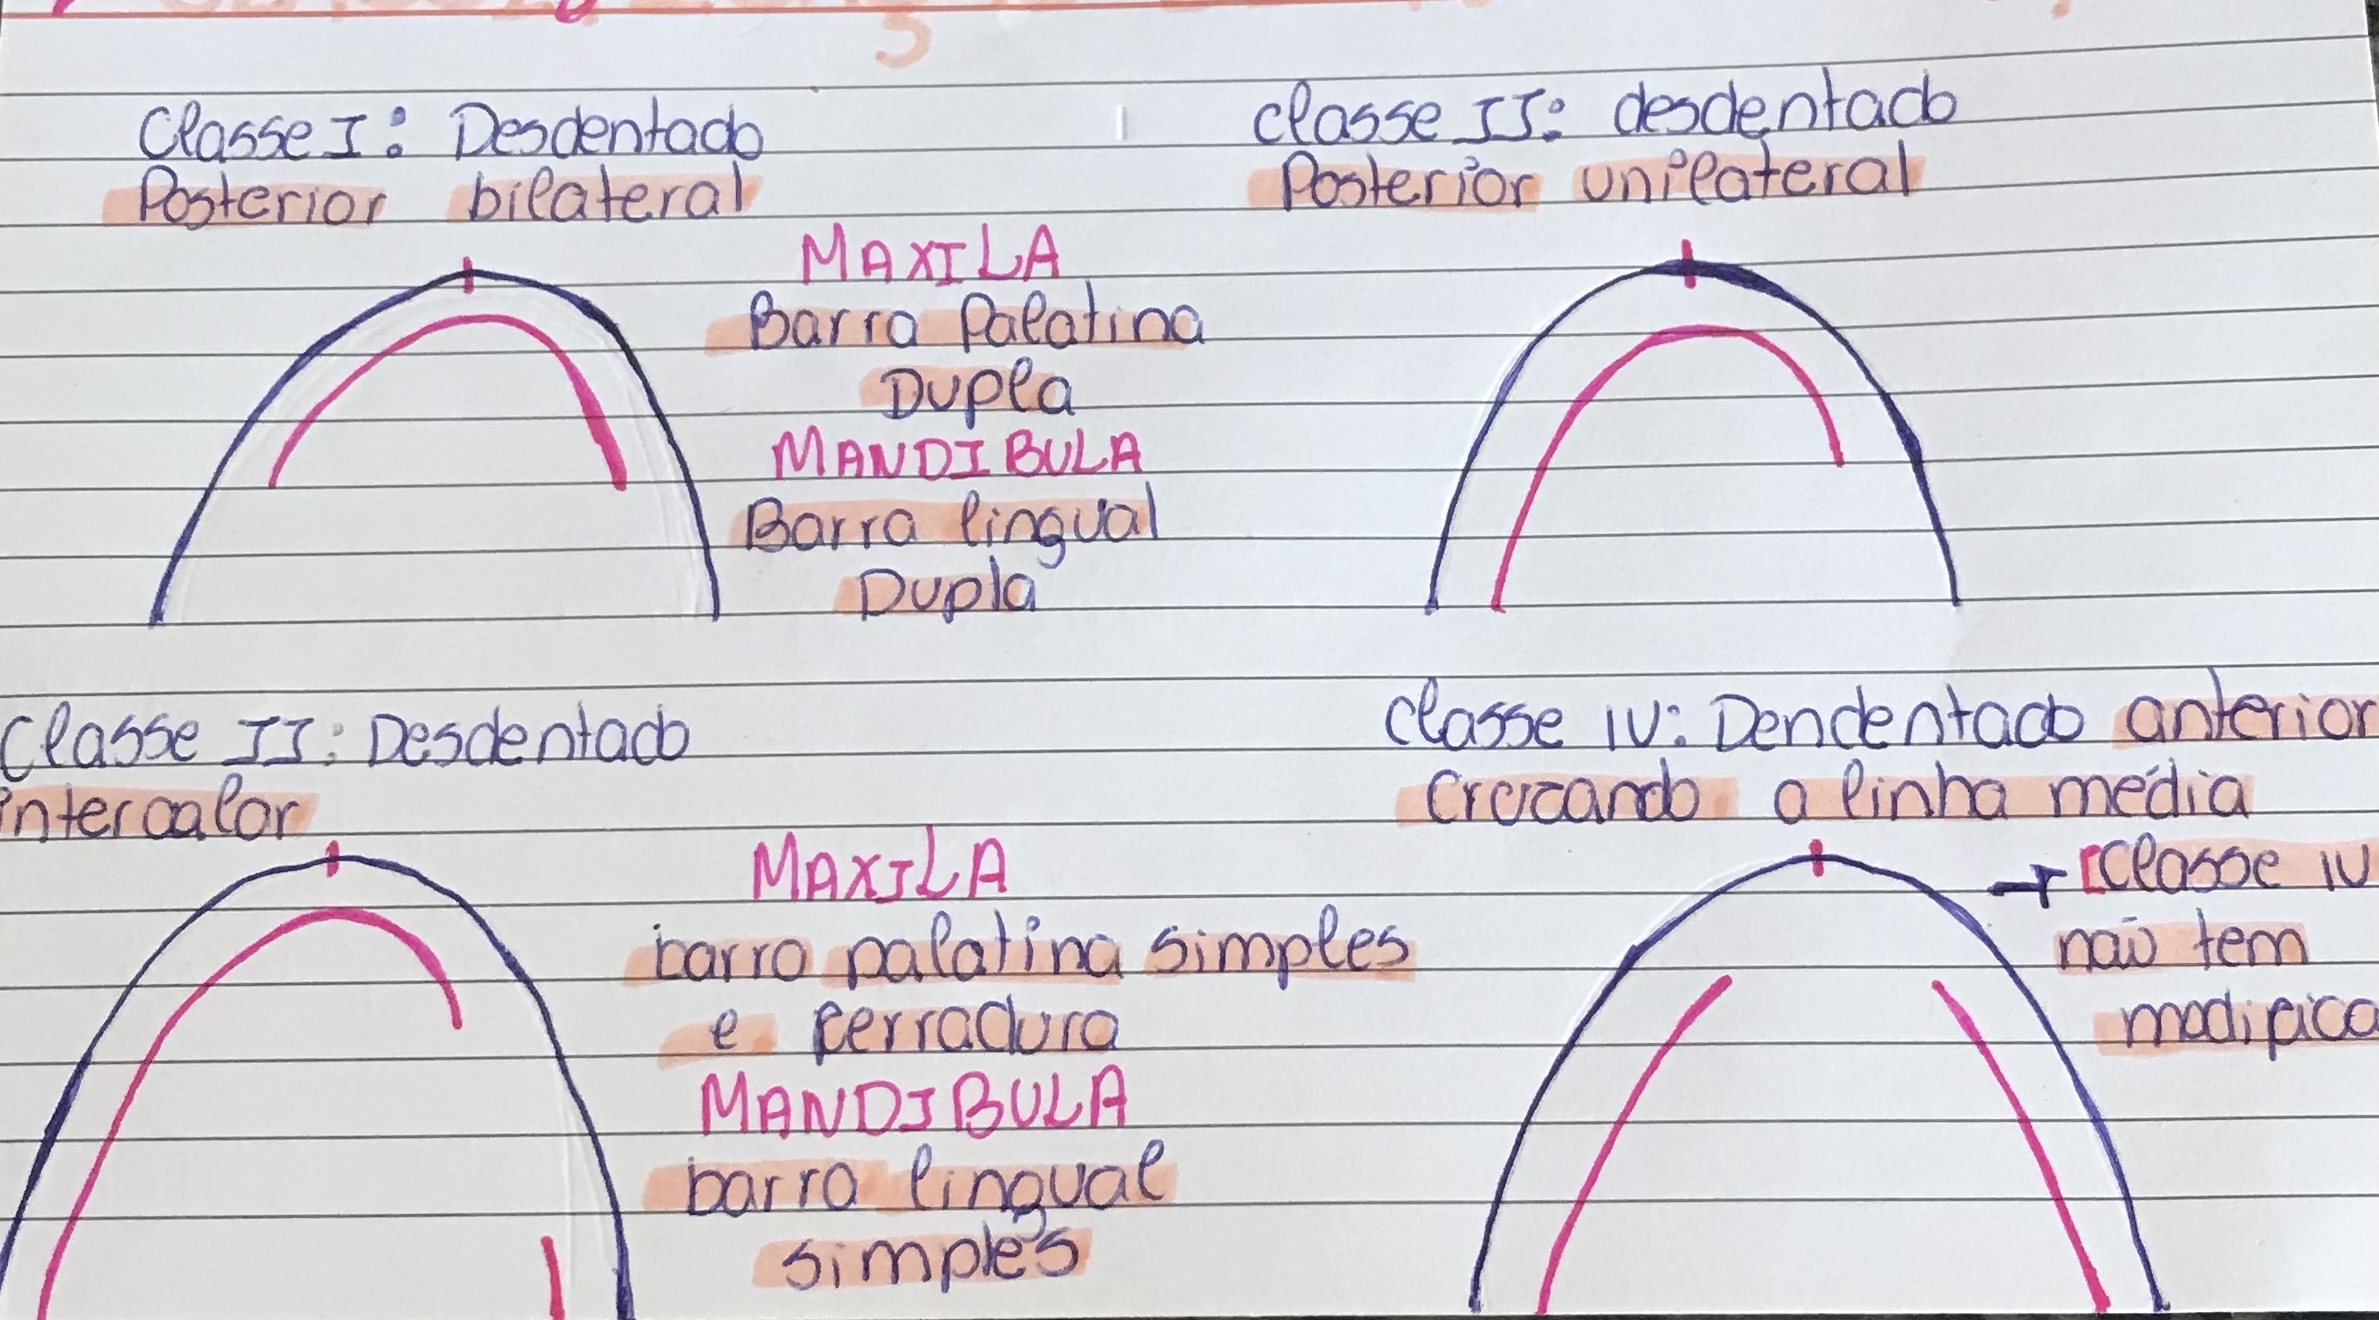 Classe I: Desdentado
Posterior bilateral
MAXILA
Barra Palatina
Dupla
MANDIBULA
Barra lingual
Dupla
classe II: desdentado
Posterior unilateral
Classe II: Desdentado
intercalar
MAXILA
barra palatina simples
e ferradura
MANDIBULA
barra lingual
simples
classe IV: Dendentado anterior
Cruzando a linha média
→ [Classe IV
não tem
modifica